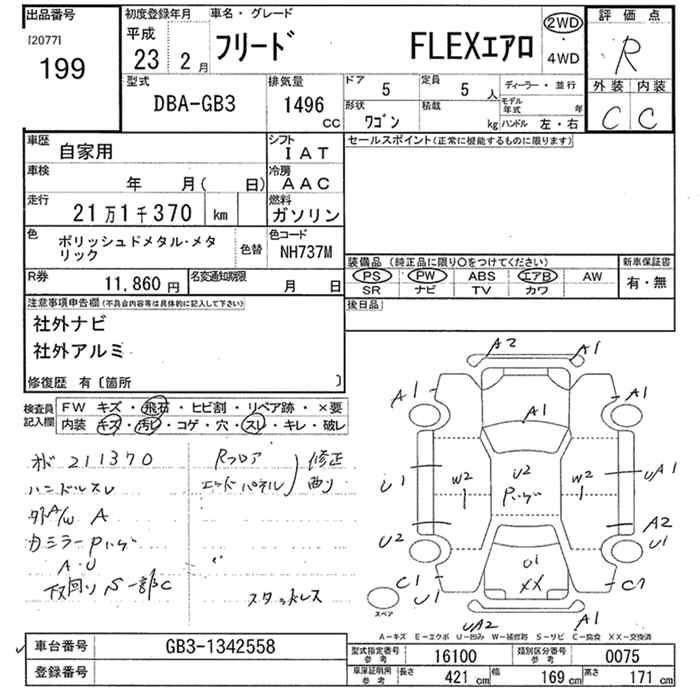 出品番号
[2077]
199
初度登録年月
平成
23年 2月
車名・グレード
フリード FLEXエアロ
2WD
・
4WD
評価点
R
外装 内装
C C
型式
DBA-GB3
排気量
1496
CC
ドア 5
形状 ワゴン
定員 5 人
積載 kg
ディーラー・並行
モデル年式 年
ハンドル 左・右
車歴
自家用
車検
年 月( 日)
走行
21万1千370 km
色
ポリッシュドメタル・メタリック
色替
R券
11,860 円
名変通知期限
月 日
シフト
IAT
冷房
AAC
燃料
ガソリン
色コード
NH737M
セールスポイント(正常に機能するものに限ります)
装備品(純正品に限り○をつけてください)
PS PW ABS エアB AW
SR ナビ TV カワ
新車保証書
有・無
後日品
注意事項申告欄(不具合内容等は具体的に記入して下さい)
社外ナビ
社外アルミ
修復歴 有〔箇所 〕
検査員記入欄
FW キズ・飛石・ヒビ割・リペア跡・×要
内装 キズ・汚レ・コゲ・穴・スレ・キレ・破レ
211370
ハンドルスレ
外A/W A
A・U
下回りS一部C
Rフロア
エンドパネル
修正
スタッドレス
A2
A1
A1
A1
A1
U1
W2
U2
W2
UA1
U2
A2
U1
U1
XX
C1
U1
C1
UA2
A1
スペア
A-キズ E-エクボ U-凹み W-補修跡 S-サビ C-腐食 XX-交換済
車台番号
GB3-1342558
登録番号
型式指定番号
参考
16100
類別区分番号
参考
0075
車庫証明用
参考
長さ 421 cm 幅 169 cm 高さ 171 cm